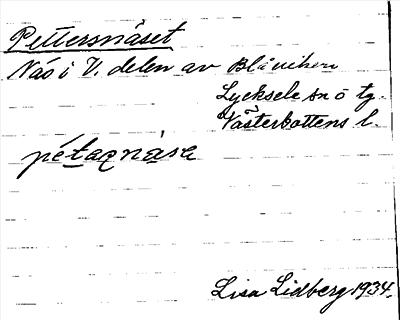 Pettersnäset
Näs i V. delen av Blåviken
Lycksele sn ö tg.
Västerbottens l.
pétaɳnása
Lisa Lidberg 1934.